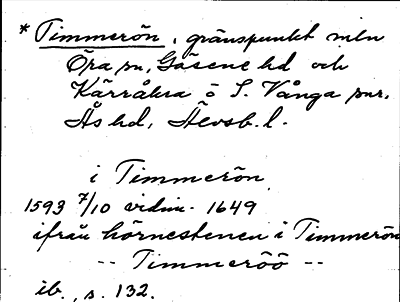 * Timmerön, gränspunkt mln
Öra sn, Gäsene hd och
Kärråkra o S. Vånga snr,
Ås hd, Älvsb. l.
i Timmerön
1593 7/10 vidim. 1649
ifrån hörnestenen i Timmerön
-- Timmeröö --
ib., s. 132.